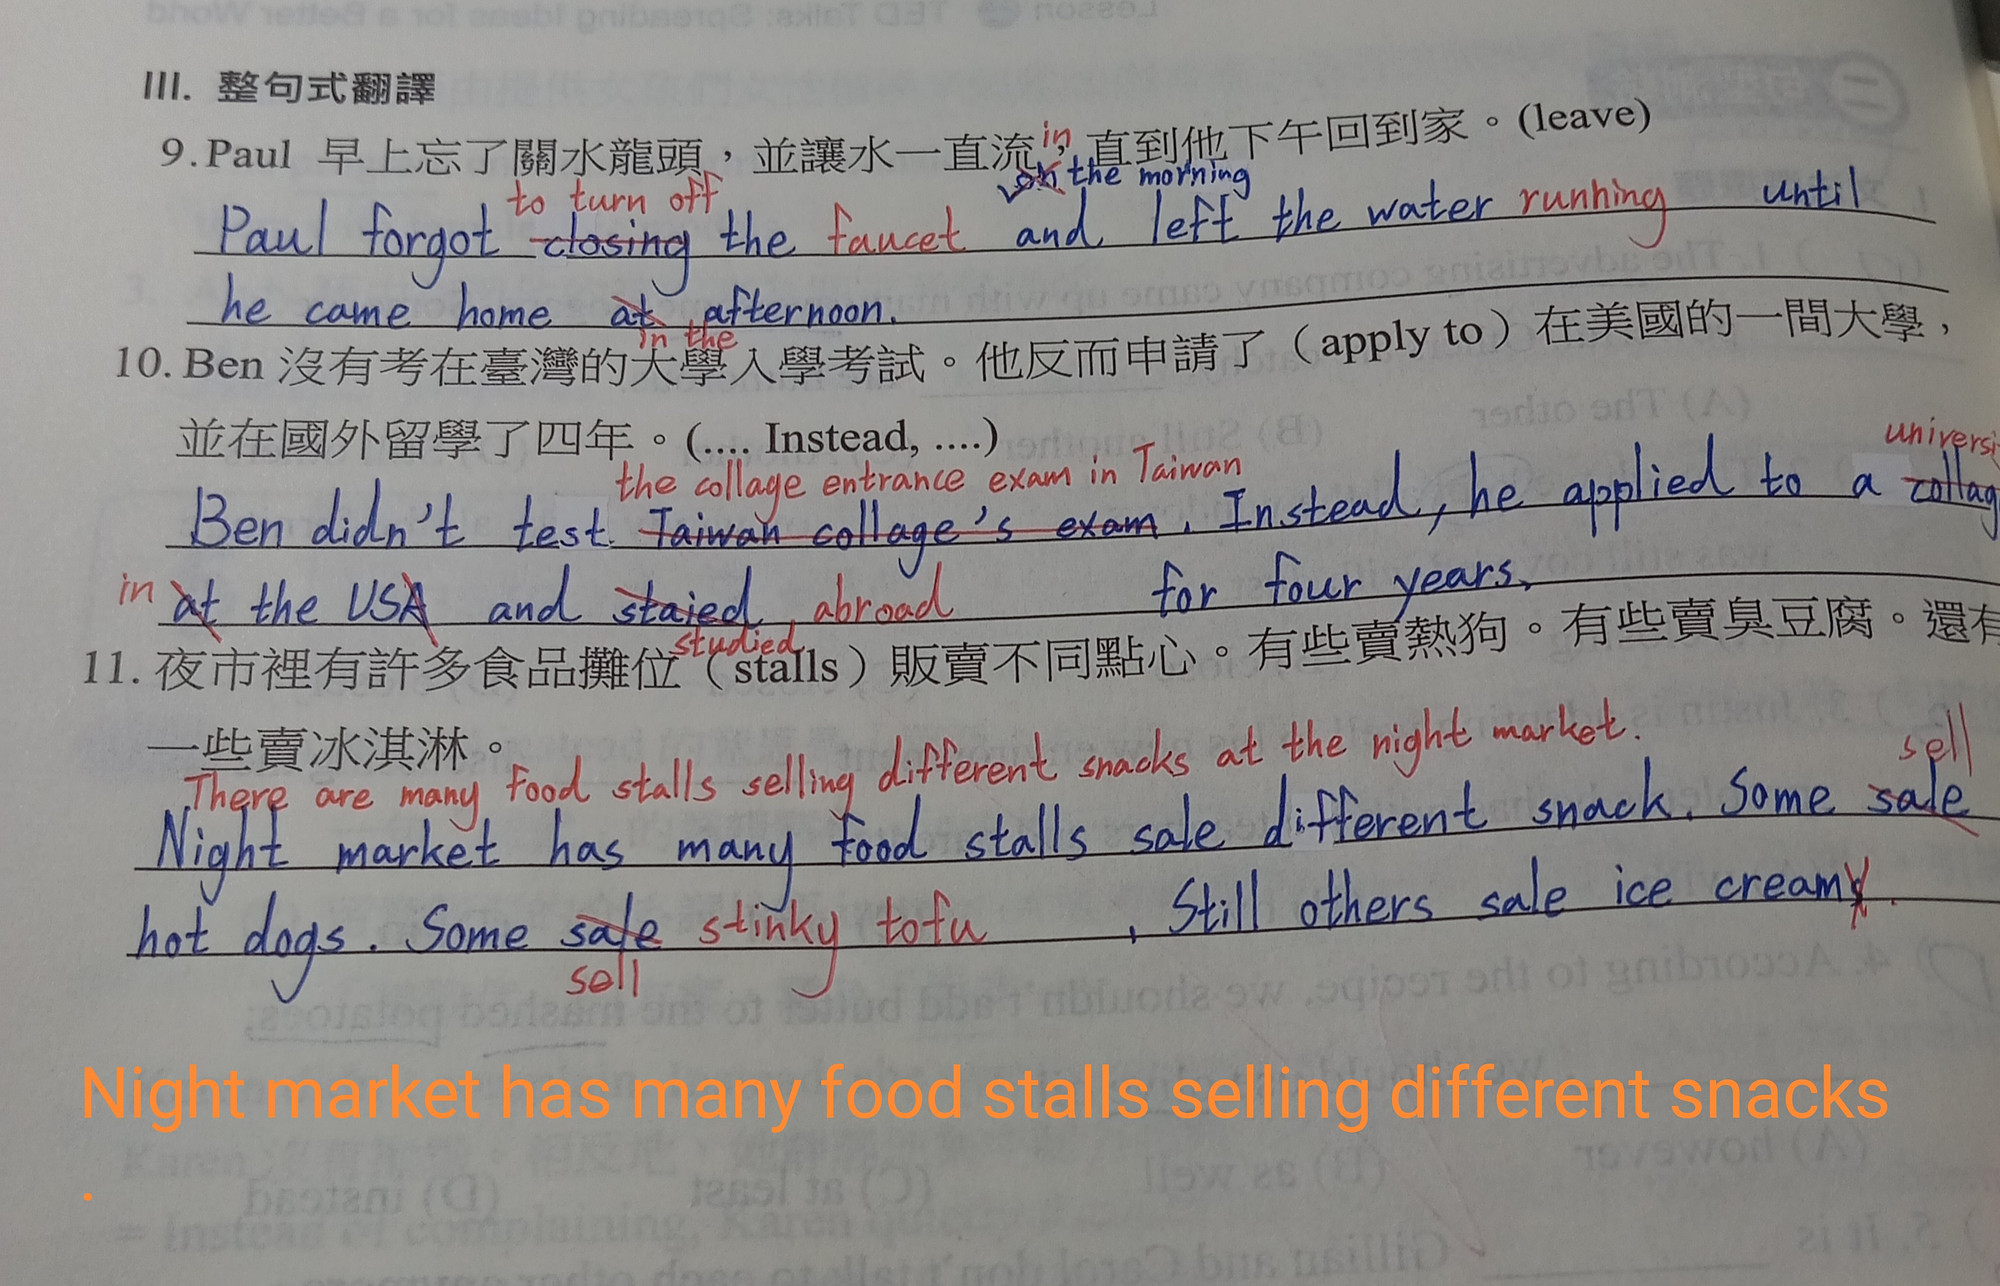 III. 整句式翻譯
9. Paul 早上忘了關水龍頭，並讓水一直流，直到他下午回到家。(leave)
in
on the morning
to turn off
Paul forgot closing the faucet and left the water running until
he came home at afternoon.
in the
10. Ben 沒有考在臺灣的大學入學考試。他反而申請了（apply to）在美國的一間大學，
並在國外留學了四年。(.... Instead, ....)
the collage entrance exam in Taiwan
universi
Ben didn't test Taiwan collage's exam. Instead, he applied to a collag
in at the USA and staied abroad for four years.
studied
11. 夜市裡有許多食品攤位（stalls）販賣不同點心。有些賣熱狗。有些賣臭豆腐。還有
一些賣冰淇淋。
There are many food stalls selling different snacks at the night market.
sell
Night market has many food stalls sale different snack. Some sale
hot dogs. Some sale stinky tofu. Still others sale ice creamy.
sell
Night market has many food stalls selling different snacks
.